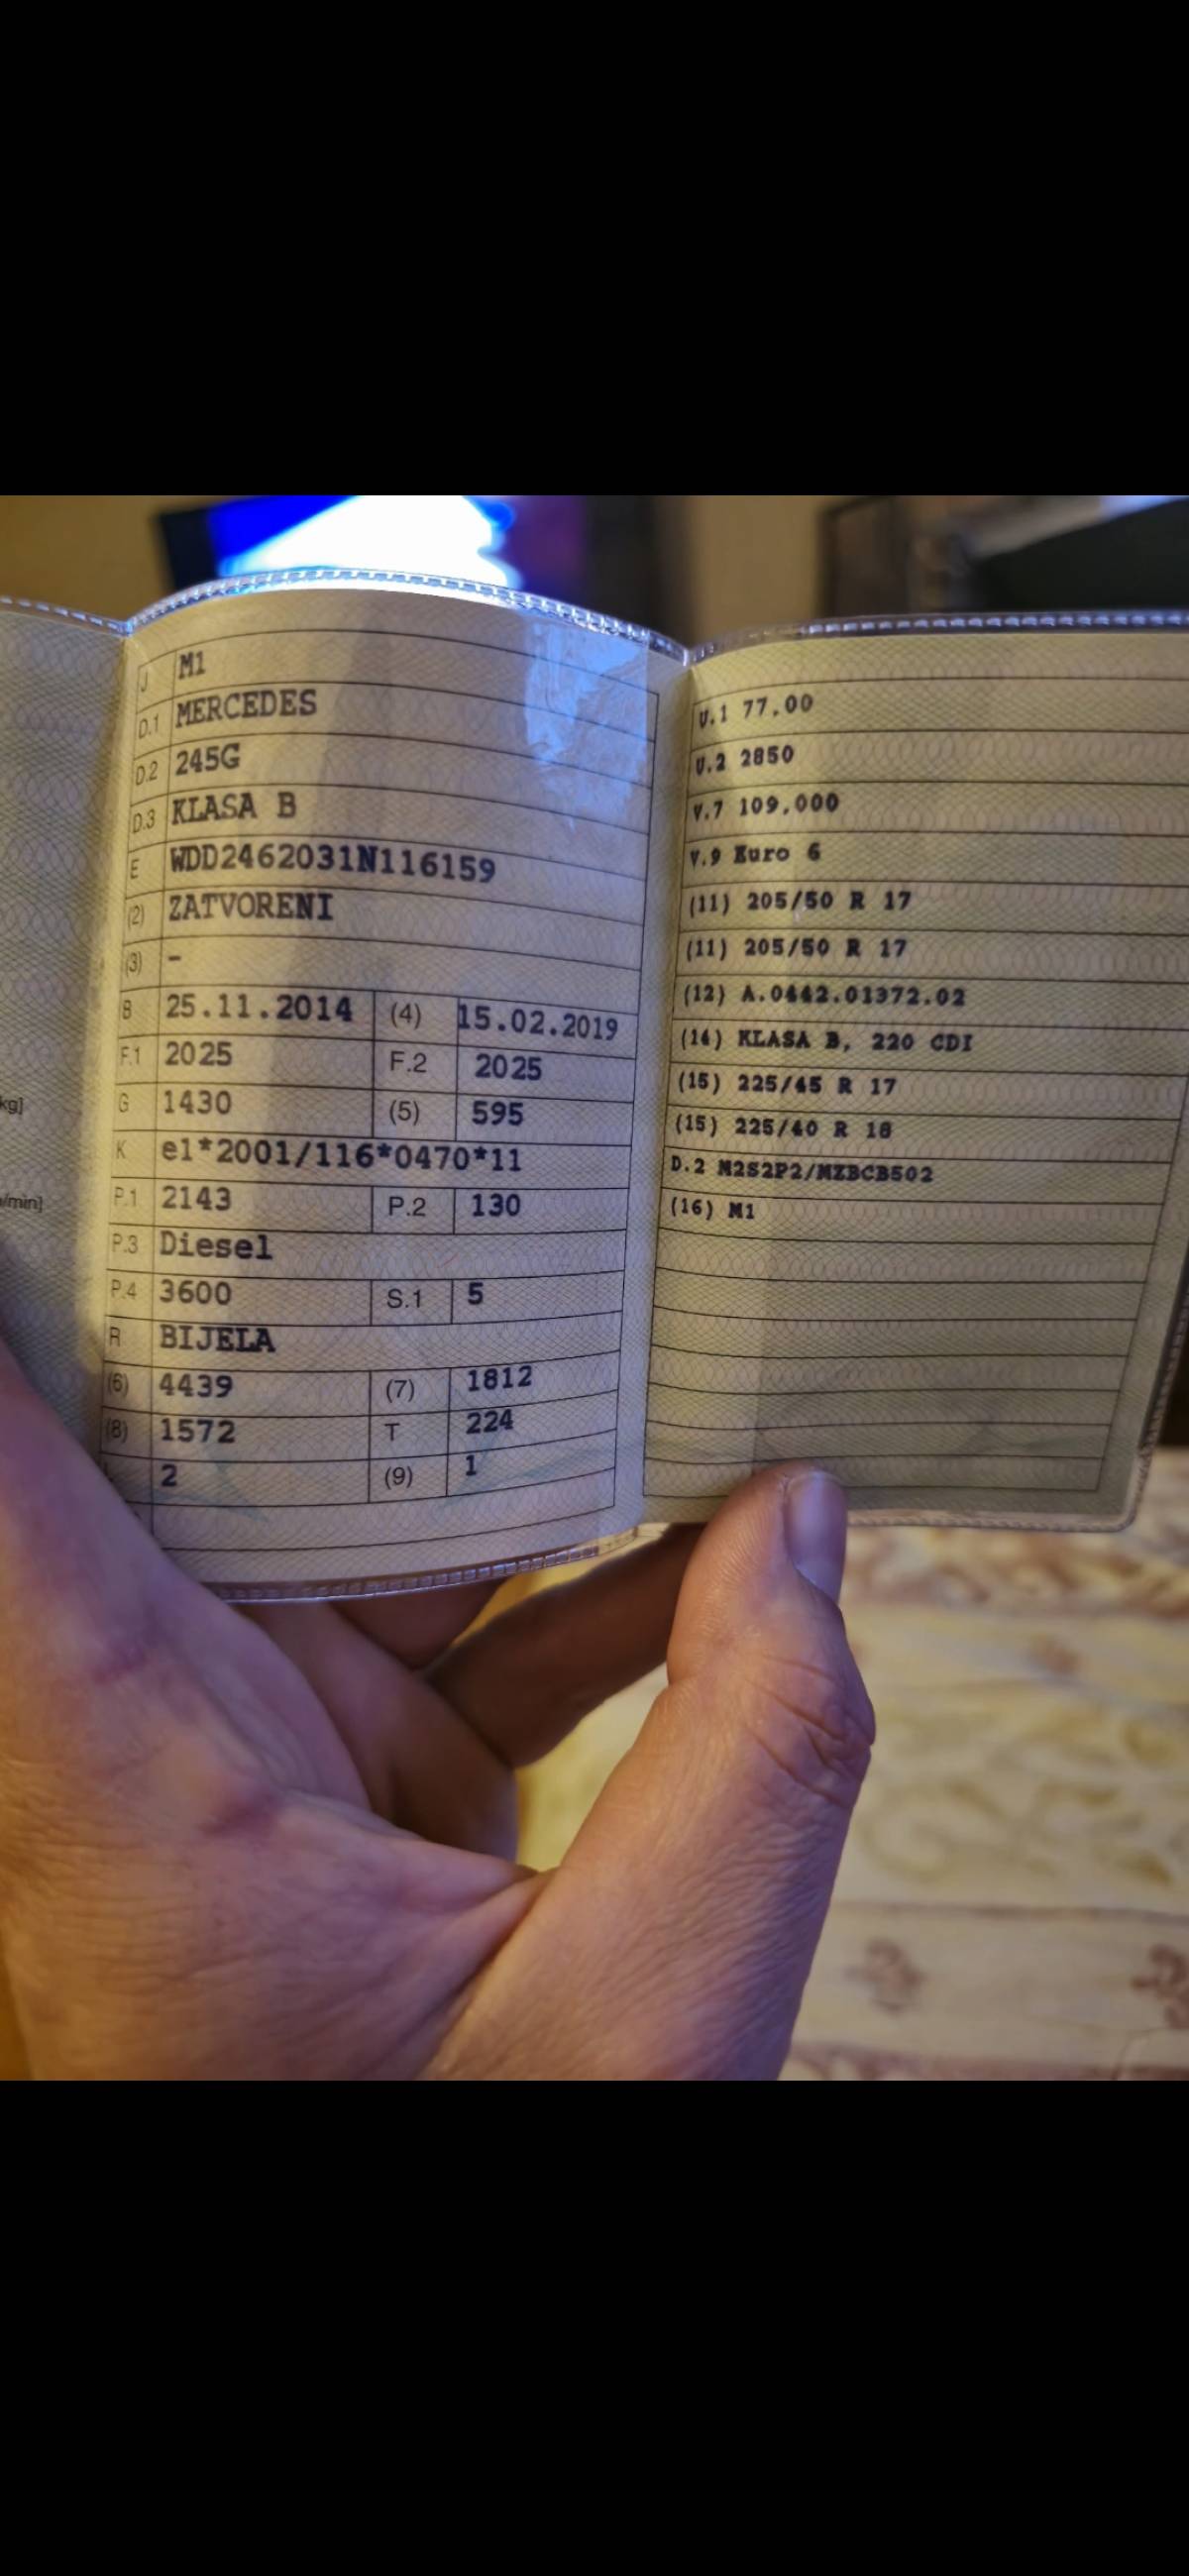 J M1
D.1 MERCEDES
D.2 245G
D.3 KLASA B
E WDD2462031N116159
(2) ZATVORENI
(3) -
B 25.11.2014 (4) 15.02.2019
F.1 2025 F.2 2025
G 1430 (5) 595
K e1*2001/116*0470*11
P.1 2143 P.2 130
P.3 Diesel
P.4 3600 S.1 5
R BIJELA
(6) 4439 (7) 1812
(8) 1572 T 224
2 (9) 1
kg]
/min]
U.1 77.00
U.2 2850
V.7 109.000
V.9 Euro 6
(11) 205/50 R 17
(11) 205/50 R 17
(12) A.0442.01372.02
(14) KLASA B, 220 CDI
(15) 225/45 R 17
(15) 225/40 R 18
D.2 M2S2P2/MZBCB502
(16) M1